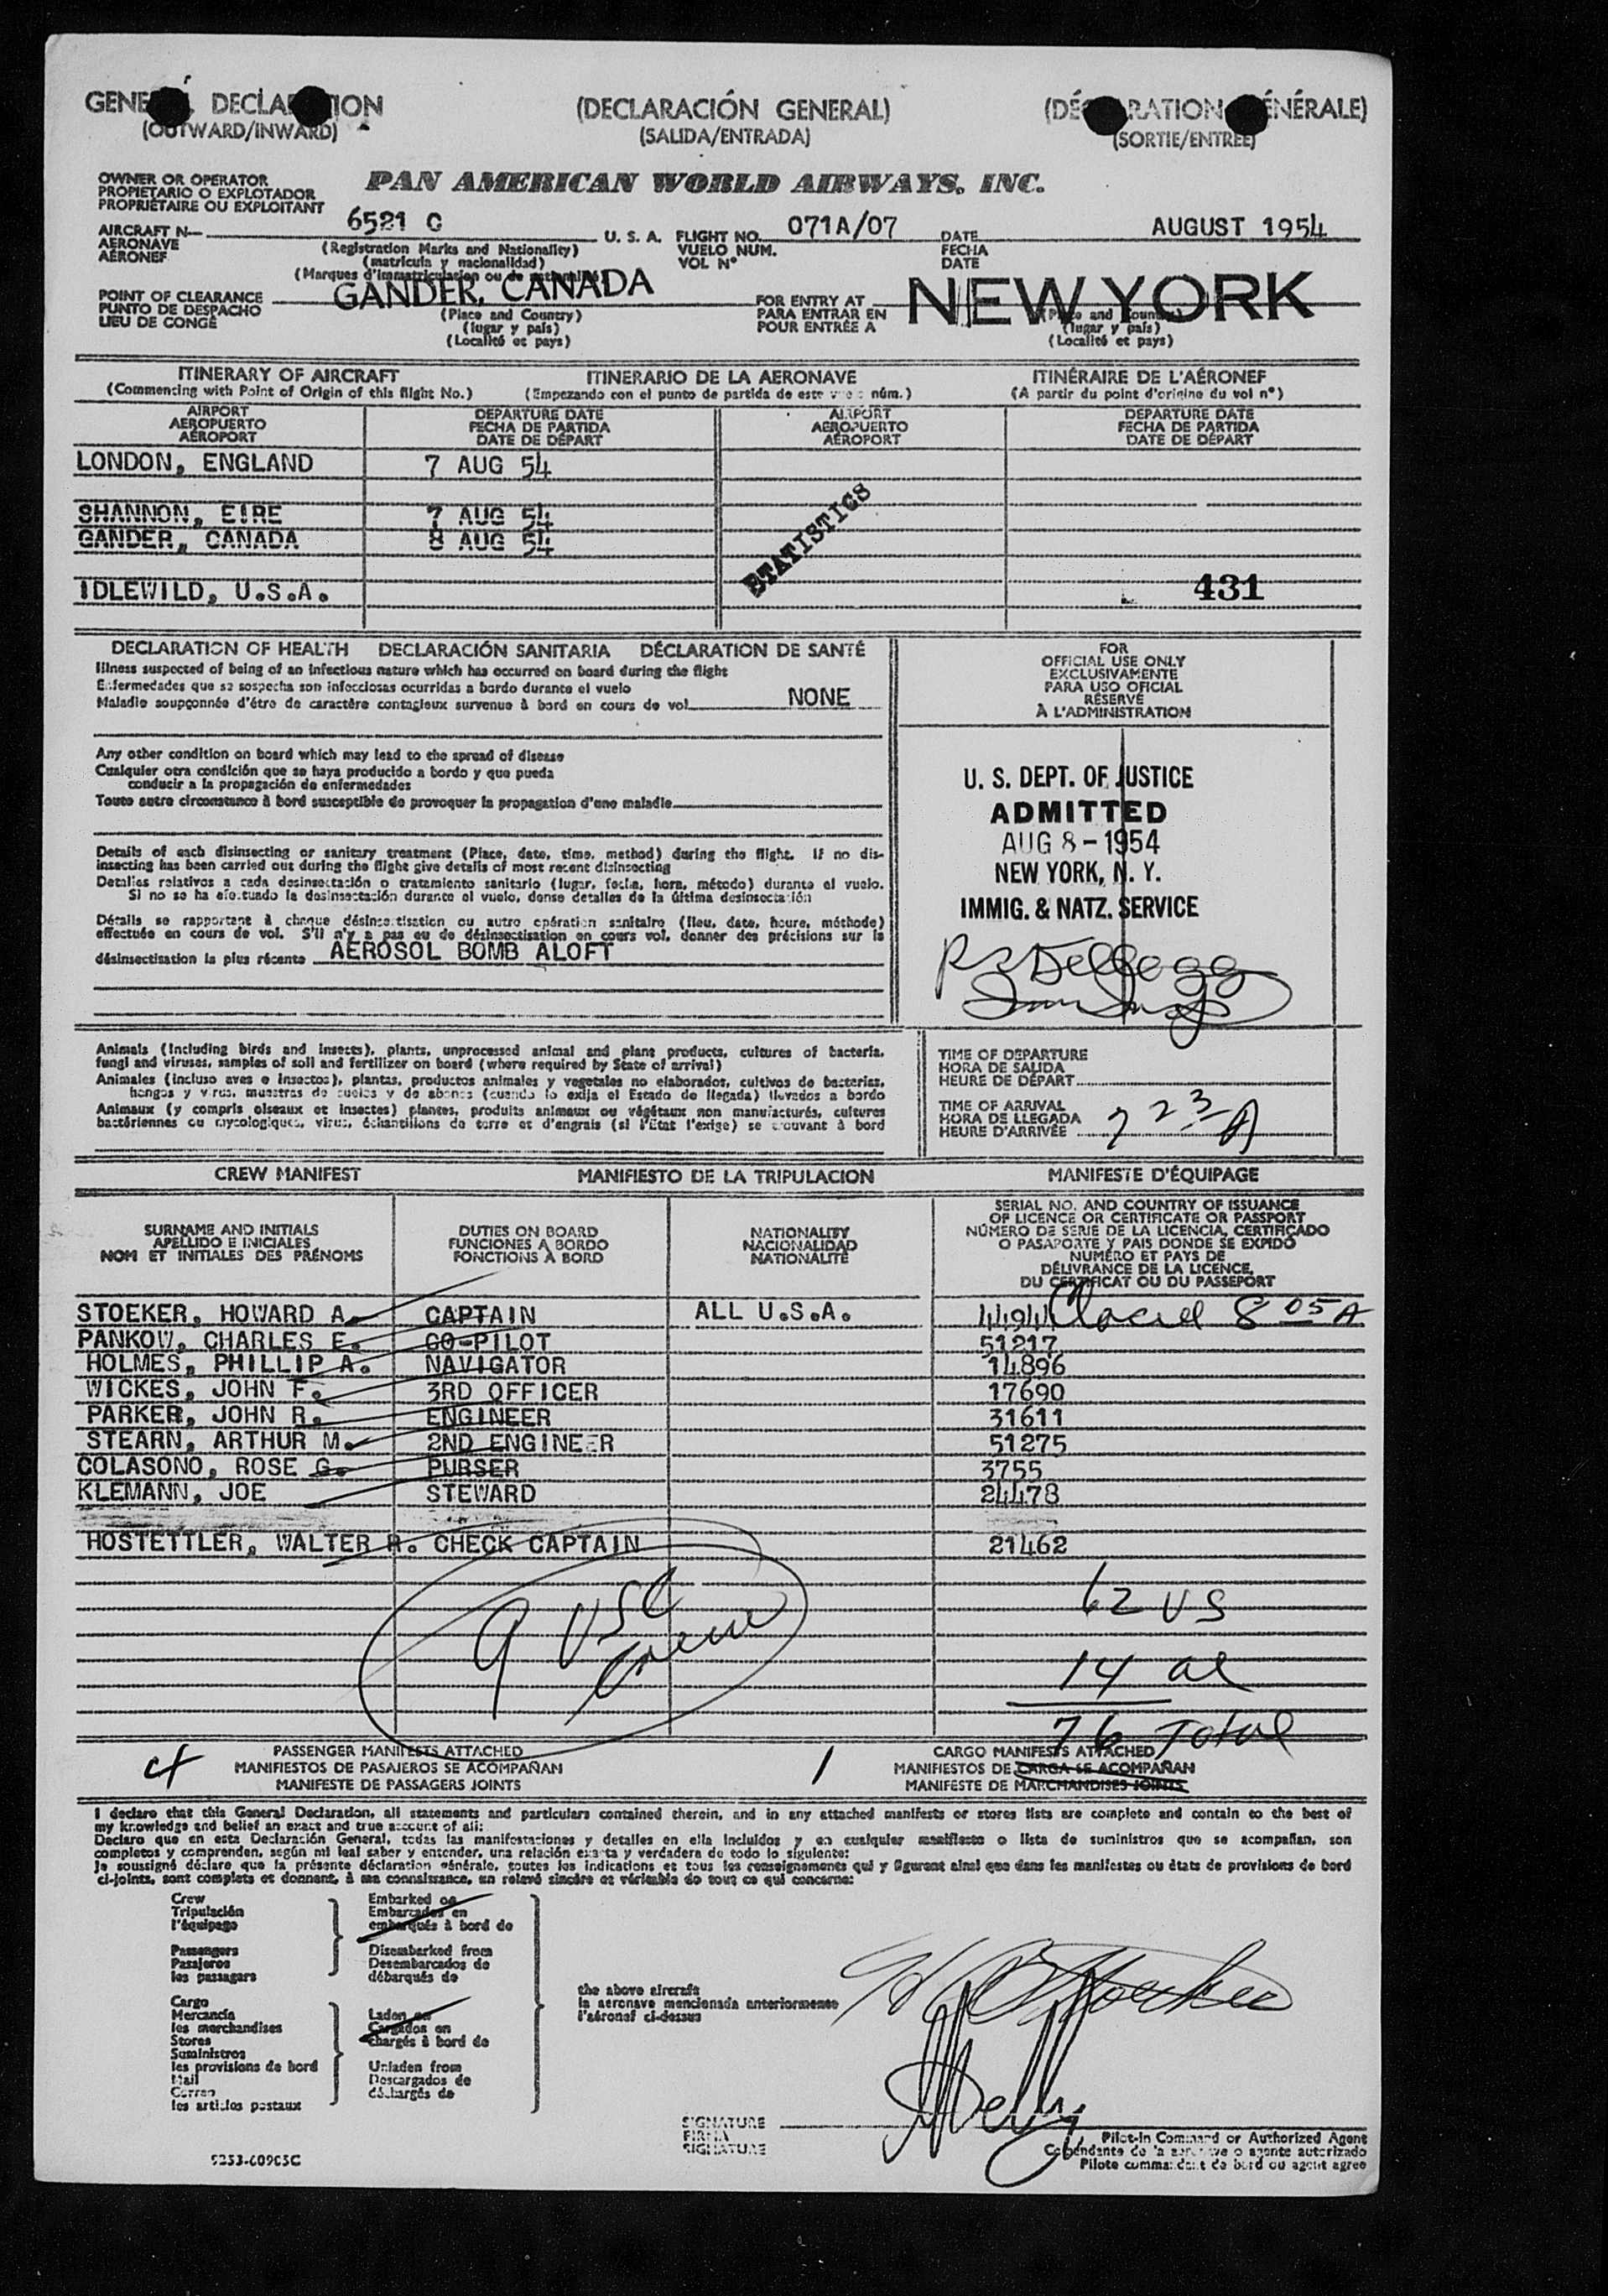 GENERAL DECLARATION (DECLARACIÓN GENERAL) (DÉCLARATION GÉNÉRALE)
(OUTWARD/INWARD) (SALIDA/ENTRADA) (SORTIE/ENTRÉE)
OWNER OR OPERATOR
PROPIETARIO O EXPLOTADOR PAN AMERICAN WORLD AIRWAYS, INC.
PROPRIÉTAIRE OU EXPLOITANT
AIRCRAFT N— 6521 C U. S. A. FLIGHT NO. 071A/07 DATE AUGUST 1954
AERONAVE (Registration Marks and Nationality) VUELO NUM. FECHA
AÉRONEF (matrícula y nacionalidad) VOL N° DATE
(Marques d'immatriculation ou de nationalité)
POINT OF CLEARANCE GANDER, CANADA FOR ENTRY AT NEW YORK
PUNTO DE DESPACHO (Place and Country) PARA ENTRAR EN (Place and Country)
LIEU DE CONGÉ (lugar y país) POUR ENTRÉE A (lugar y país)
(Localité et pays) (Localité et pays)
ITINERARY OF AIRCRAFT ITINERARIO DE LA AERONAVE ITINÉRAIRE DE L'AÉRONEF
(Commencing with Point of Origin of this flight No.) (Empezando con el punto de partida de este vuelo núm.) (A partir du point d'origine du vol n°)
AIRPORT DEPARTURE DATE AIRPORT DEPARTURE DATE
AEROPUERTO FECHA DE PARTIDA AEROPUERTO FECHA DE PARTIDA
AÉROPORT DATE DE DÉPART AÉROPORT DATE DE DÉPART
LONDON, ENGLAND 7 AUG 54
SHANNON, EIRE 7 AUG 54
GANDER, CANADA 8 AUG 54
STATISTICS
IDLEWILD, U.S.A. 431
DECLARATION OF HEALTH DECLARACIÓN SANITARIA DÉCLARATION DE SANTÉ
Illness suspected of being of an infectious nature which has occurred on board during the flight
Enfermedades que se sospecha son infecciosas ocurridas a bordo durante el vuelo
Maladie soupçonnée d'être de caractère contagieux survenue à bord en cours de vol NONE
Any other condition on board which may lead to the spread of disease
Cualquier otra condición que se haya producido a bordo y que pueda
conducir a la propagación de enfermedades
Toute autre circonstance à bord susceptible de provoquer la propagation d'une maladie
Details of each disinsecting or sanitary treatment (Place, date, time, method) during the flight. If no dis-
insecting has been carried out during the flight give details of most recent disinsecting
Detalles relativos a cada desinsectación o tratamiento sanitario (lugar, fecha, hora, método) durante el vuelo.
Si no se ha efectuado la desinsectación durante el vuelo, dense detalles de la última desinsectación
Détails se rapportant à chaque désinsectisation ou autre opération sanitaire (lieu, date, heure, méthode)
effectuée en cours de vol. S'il n'y a pas eu de désinsectisation en cours vol, donner des précisions sur la
désinsectisation la plus récente AEROSOL BOMB ALOFT
FOR
OFFICIAL USE ONLY
EXCLUSIVAMENTE
PARA USO OFICIAL
RÉSERVÉ
À L'ADMINISTRATION
U. S. DEPT. OF JUSTICE
ADMITTED
AUG 8 - 1954
NEW YORK, N. Y.
IMMIG. & NATZ. SERVICE
Animals (including birds and insects), plants, unprocessed animal and plant products, cultures of bacteria,
fungi and viruses, samples of soil and fertilizer on board (where required by State of arrival)
Animales (incluso aves e insectos), plantas, productos animales y vegetales no elaborados, cultivos de bacterias,
hongos y virus, muestras de suelos y de abonos (cuando lo exija el Estado de llegada) llevados a bordo
Animaux (y compris oiseaux et insectes) plantes, produits animaux ou végétaux non manufacturés, cultures
bactériennes ou mycologiques, virus, échantillons de terre et d'engrais (si l'État l'exige) se trouvant à bord
TIME OF DEPARTURE
HORA DE SALIDA
HEURE DE DÉPART
TIME OF ARRIVAL
HORA DE LLEGADA
HEURE D'ARRIVÉE 7 23 A
CREW MANIFEST MANIFIESTO DE LA TRIPULACION MANIFESTE D'ÉQUIPAGE
SURNAME AND INITIALS DUTIES ON BOARD NATIONALITY
APELLIDO E INICIALES FUNCIONES A BORDO NACIONALIDAD
NOM ET INITIALES DES PRÉNOMS FONCTIONS À BORD NATIONALITÉ
SERIAL NO. AND COUNTRY OF ISSUANCE
OF LICENCE OR CERTIFICATE OR PASSPORT
NÚMERO DE SERIE DE LA LICENCIA, CERTIFICADO
O PASAPORTE Y PAIS DONDE SE EXPIDÓ
NUMÉRO ET PAYS DE
DÉLIVRANCE DE LA LICENCE,
DU CERTIFICAT OU DU PASSEPORT
STOEKER, HOWARD A. CAPTAIN ALL U.S.A. 8 05 A
PANKOW, CHARLES E. CO-PILOT 51217
HOLMES, PHILLIP A. NAVIGATOR 14896
WICKES, JOHN F. 3RD OFFICER 17690
PARKER, JOHN R. ENGINEER 31611
STEARN, ARTHUR M. 2ND ENGINEER 51275
COLASONO, ROSE G. PURSER 3755
KLEMANN, JOE STEWARD 24478
HOSTETTLER, WALTER R. CHECK CAPTAIN 21462
9 USC Crew
62 US
14 al
76 Total
4 PASSENGER MANIFESTS ATTACHED 1 CARGO MANIFESTS ATTACHED
MANIFIESTOS DE PASAJEROS SE ACOMPAÑAN MANIFIESTOS DE CARGA SE ACOMPAÑAN
MANIFESTE DE PASSAGERS JOINTS MANIFESTE DE MARCHANDISES JOINTS
I declare that this General Declaration, all statements and particulars contained therein, and in any attached manifests or stores lists are complete and contain to the best of
my knowledge and belief an exact and true account of all:
Declaro que en esta Declaración General, todas las manifestaciones y detalles en ella incluidos y en cualquier manifiesto o lista de suministros que se acompañan, son
completos y comprenden, según mi leal saber y entender, una relación exacta y verdadera de todo lo siguiente:
Je soussigné déclare que la présente déclaration générale, toutes les indications et tous les renseignements qui y figurent ainsi que dans les manifestes ou états de provisions de bord
ci-joints, sont complets et donnent, à ma connaissance, un relevé sincère et véritable de tout ce qui concerne:
Crew Embarked on
Tripulación Embarcados en
l'équipage embarqués à bord de
Passengers Disembarked from
Pasajeros Desembarcados de
les passagers débarqués de
the above aircraft
la aeronave mencionada anteriormente
l'aéronef ci-dessus
Cargo
Mercancía Laden on
les marchandises Cargados en
Stores chargés à bord de
Suministros
les provisions de bord Unladen from
Mail Descargados de
Correo déchargés de
les articles postaux
SIGNATURE
FIRMA
SIGNATURE
Pilot-in Command or Authorized Agent
Comandante de la aeronave o agente autorizado
Pilote commandant de bord ou agent agréé